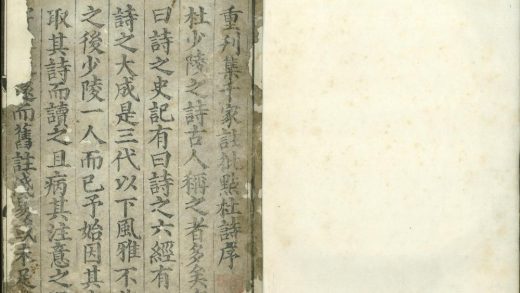 重刊集千家註批點杜詩序
杜少陵之詩古人稱之者多矣
曰詩之史記有曰詩之六經有
詩之大成是三代以下風雅不
之後少陵一人而已予始因其
取其詩而讀之且病其注意之
而舊註淺易以不足